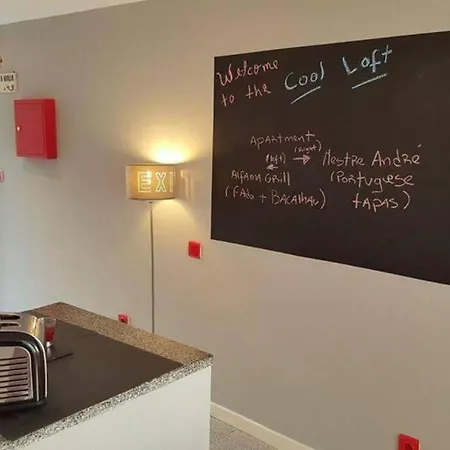 Welcome
to the Cool Loft
Apartment
(left) (right)
Alfama Grill Mestre André
(Fado + Bacalhau) (Portuguese
tapas)
EXI